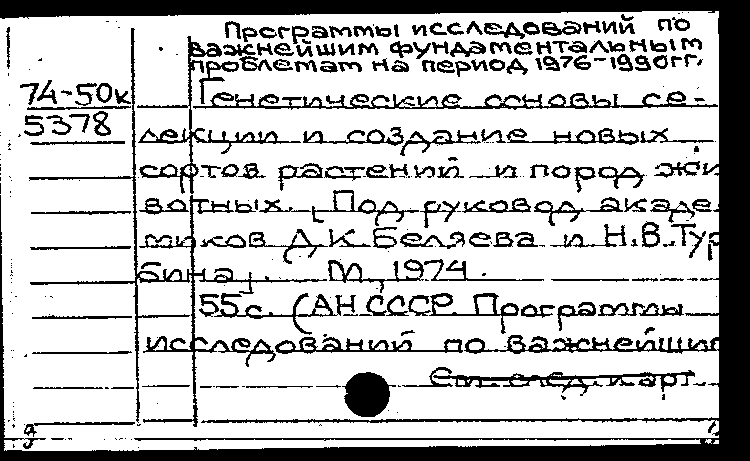 Программы исследований по
важнейшим фундаментальным
проблемам на период 1976-1990гг.
74-50к
5378
Генетические основы се-
лекции и создание новых
сортов растений и пород жи
вотных. [Под руковод. акаде
миков Д.К. Беляева и Н.В. Тур
бина]. М., 1974.
55с. (АН СССР. Программы
исследований по важнейшим
См. след. карт.